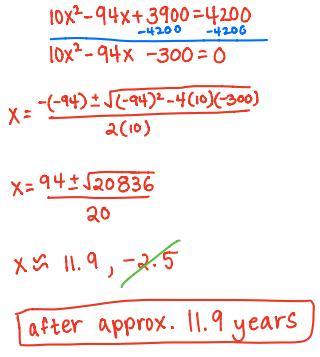 10x²-94x+3900=4200
-4200 -4200
10x²-94x -300=0
x= -(-94)±√(-94)²-4(10)(-300)
2(10)
x= 94±√20836
20
x≈ 11.9, -2.5
after approx. 11.9 years